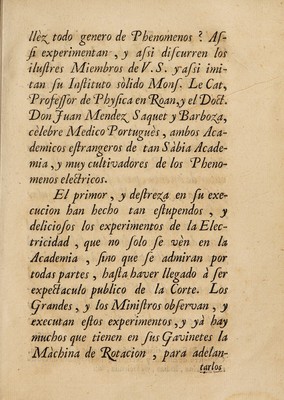 llèz todo genero de Phenomenos? Aſ-
ſi experimentan, y aſsi diſcurren los
iluſtres Miembros de V. S. y aſsi imi-
tan ſu Inſtituto sòlido Monſ. Le Cat,
Profeſſor de Phyſica en Roan, y el Doct.
Don Juan Mendez Saquet y Barboza,
cèlebre Medico Portuguès, ambos Aca-
demicos eſtrangeros de tan Sàbia Acade-
mia, y muy cultivadores de los Pheno-
menos electricos.
El primor, y deſtreza en ſu exe-
cucion han hecho tan eſtupendos, y
delicioſos los experimentos de la Elec-
tricidad, que no ſolo ſe vèn en la
Academia, ſino que ſe admiran por
todas partes, haſta haver llegado à ſer
expectaculo publico de la Corte. Los
Grandes, y los Miniſtros obſervan, y
executan eſtos experimentos, y yà hay
muchos que tienen en ſus Gavinetes la
Màchina de Rotacion, para adelan-
tarlos.